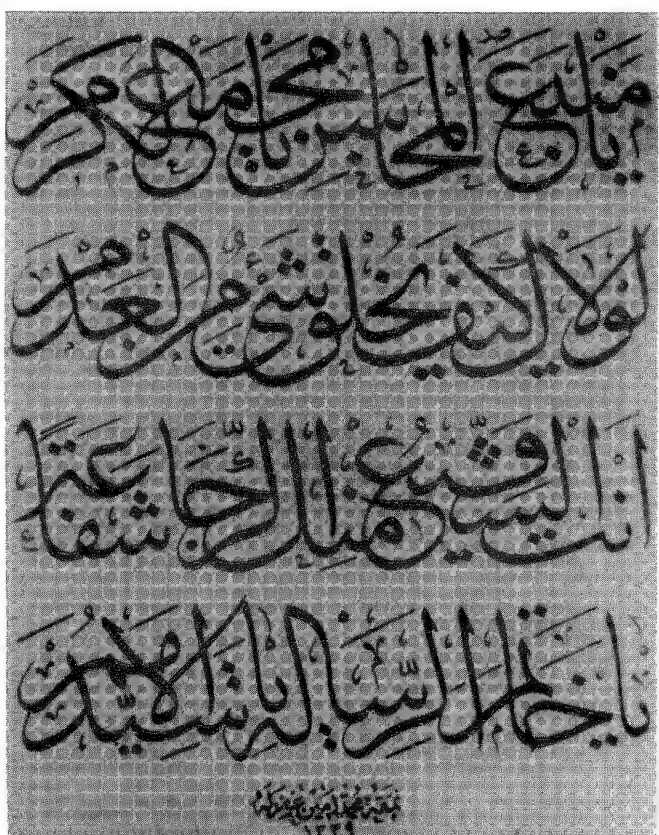 يا منبع المحاسن يا مجمع الكرم
لولاك كيف يخلو شئ من العدم
انت الشفيع منك الرجا شفاعة
يا خاتم الرسالة يا سيد الامم